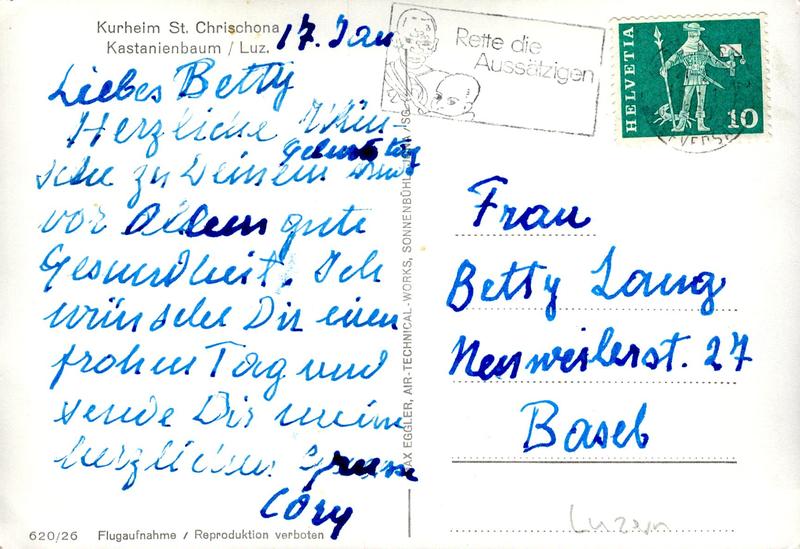 Kurheim St. Chrischona
Kastanienbaum / Luz.
17. Jan
Liebes Betty
Herzliche Wün-
sche zu Deinem Geburtstag und
vor Allem gute
Gesundheit. Ich
wünsche Dir einen
frohen Tag und
sende Dir meine
herzlichen Grüsse
Cory
620/26 Flugaufnahme / Reproduktion verboten
AX EGGLER, AIR-TECHNICAL-WORKS, SONNENBÜHL
Rette die
Aussätzigen
HELVETIA
10
Frau
Betty Lang
Neuweilerst. 27
Basel
Luzern